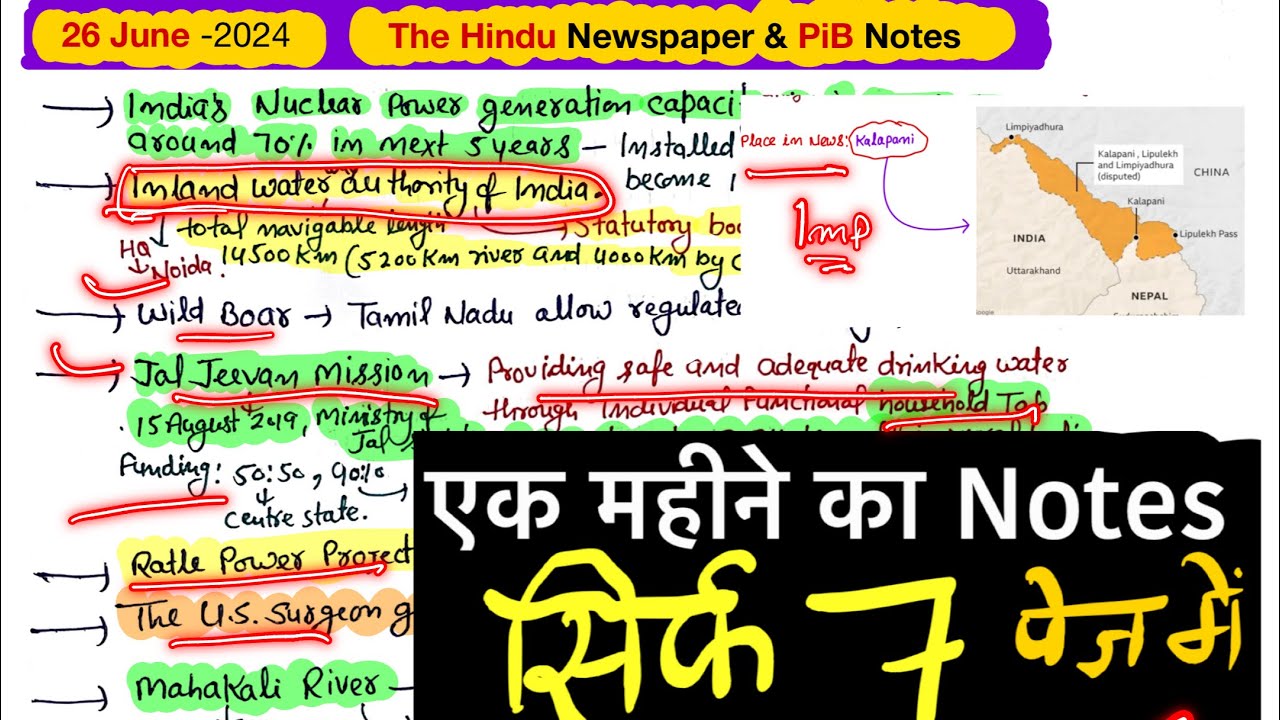 26 June -2024
The Hindu Newspaper & PiB Notes
India's Nuclear Power generation capaci
around 70% in next 5 years – Installed
become
Inland water authority of India.
total navigable length → Statutory bo
HQ
Noida.
14500 Km (5200 Km river and 4000 Km by
Wild Boar → Tamil Nadu allow regulate
Jal Jeevan Mission → Providing safe and adequate drinking water
through individual functional household Tap
15 August 2019, Ministry of
Jal
Funding: 50:50, 90%
Centre state.
Ratle Power Project
The U.S. Surgeon g
Mahakali River –
Place in News: Kalapani
Imp
Limpiyadhura
Kalapani , Lipulekh
and Limpiyadhura
(disputed)
CHINA
Kalapani
Lipulekh Pass
INDIA
Uttarakhand
NEPAL
oogle
एक महीने का Notes
सिर्फ 7 पेज में